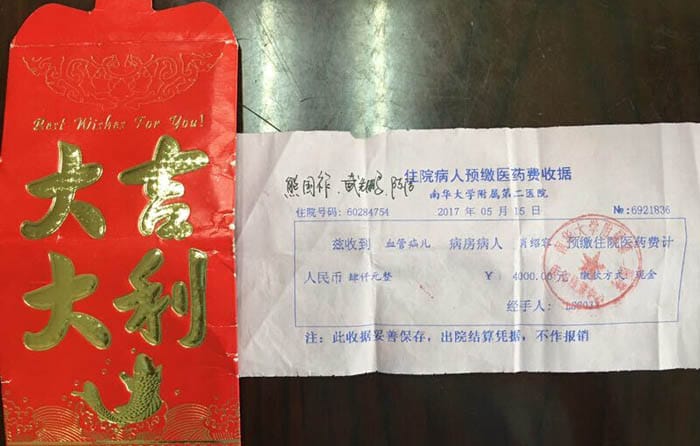 Best Wishes For You!
大吉
大利
住院病人预缴医药费收据
南华大学附属第二医院
住院号码: 60284754 2017 年 05 月 15 日 №:6921836
兹收到 血管病儿 病房病人 肖绍容 预缴住院医药费计
人民币 肆仟元整 ¥ 4000.00元 缴款方式: 现金
经手人:
注: 此收据妥善保存, 出院结算凭据, 不作报销